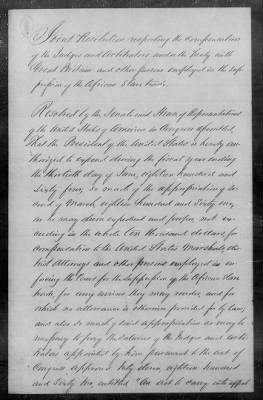 Joint Resolution respecting the compensation
of the Judges and Arbitrators under the Treaty with
Great Britain and other persons employed in the sup-
pression of the African Slave trade.
Resolved by the Senate and House of Representatives
of the United States of America in Congress assembled,
That the President of the United States is hereby au-
thorized to expend during the fiscal year ending
the thirtieth day of June, eighteen hundred and
sixty four, so much of the appropriation of
of March, eighteen hundred and sixty
as he may deem expedient and proper, not ex-
ceeding in the whole ten thousand dollars for
compensation to the United States Marshals, dis-
trict Attorneys and other persons employed in en-
forcing the laws for the suppression of the African slave
trade, for any services they may render, and for
which no allowance is otherwise provided for by law;
and also so much of said appropriation as may be
necessary to pay the salaries of the Judges and arbi-
trators appointed by him pursuant to the act of
Congress approved July eleven, eighteen hundred
and sixty two, entitled "An Act to carry into effect